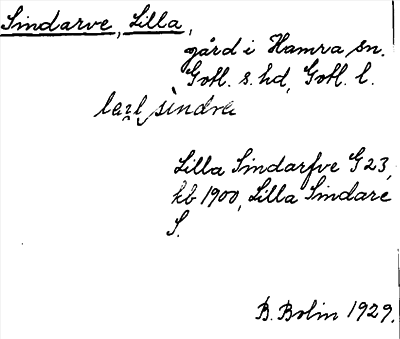 Sindarve, Lilla,
gård i Hamra sn.
Gotl. s. hd, Gotl. l.
sìndre
Lilla Sindarfve G 23,
kb 1900, Lilla Sindare
S.
B. Bolin 1929.